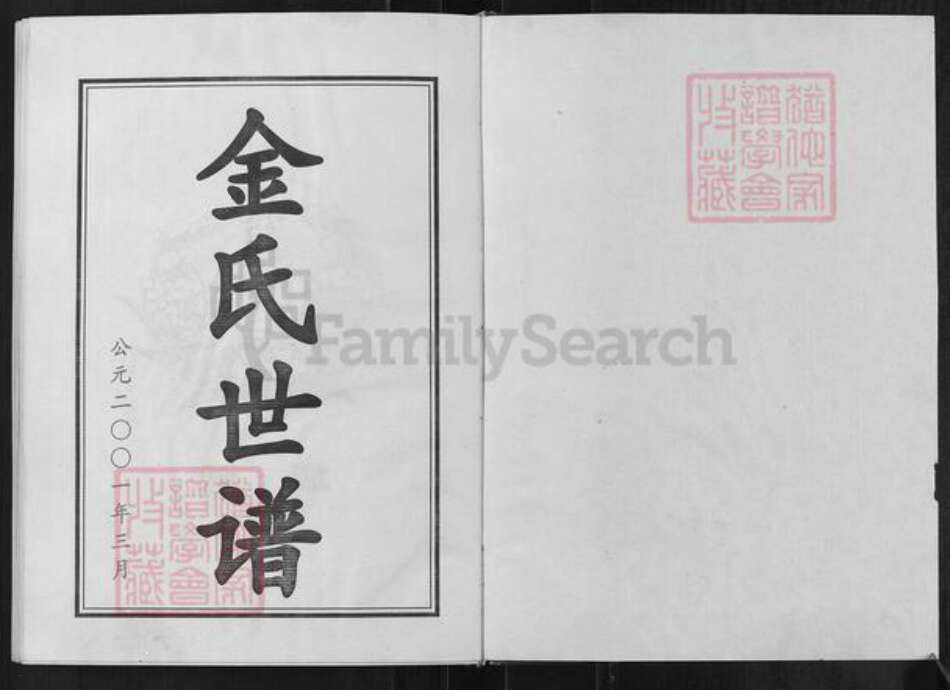 金氏世谱
公元二〇〇一年三月
猶他家
譜學會
收藏
猶他家
譜學會
收藏
FamilySearch